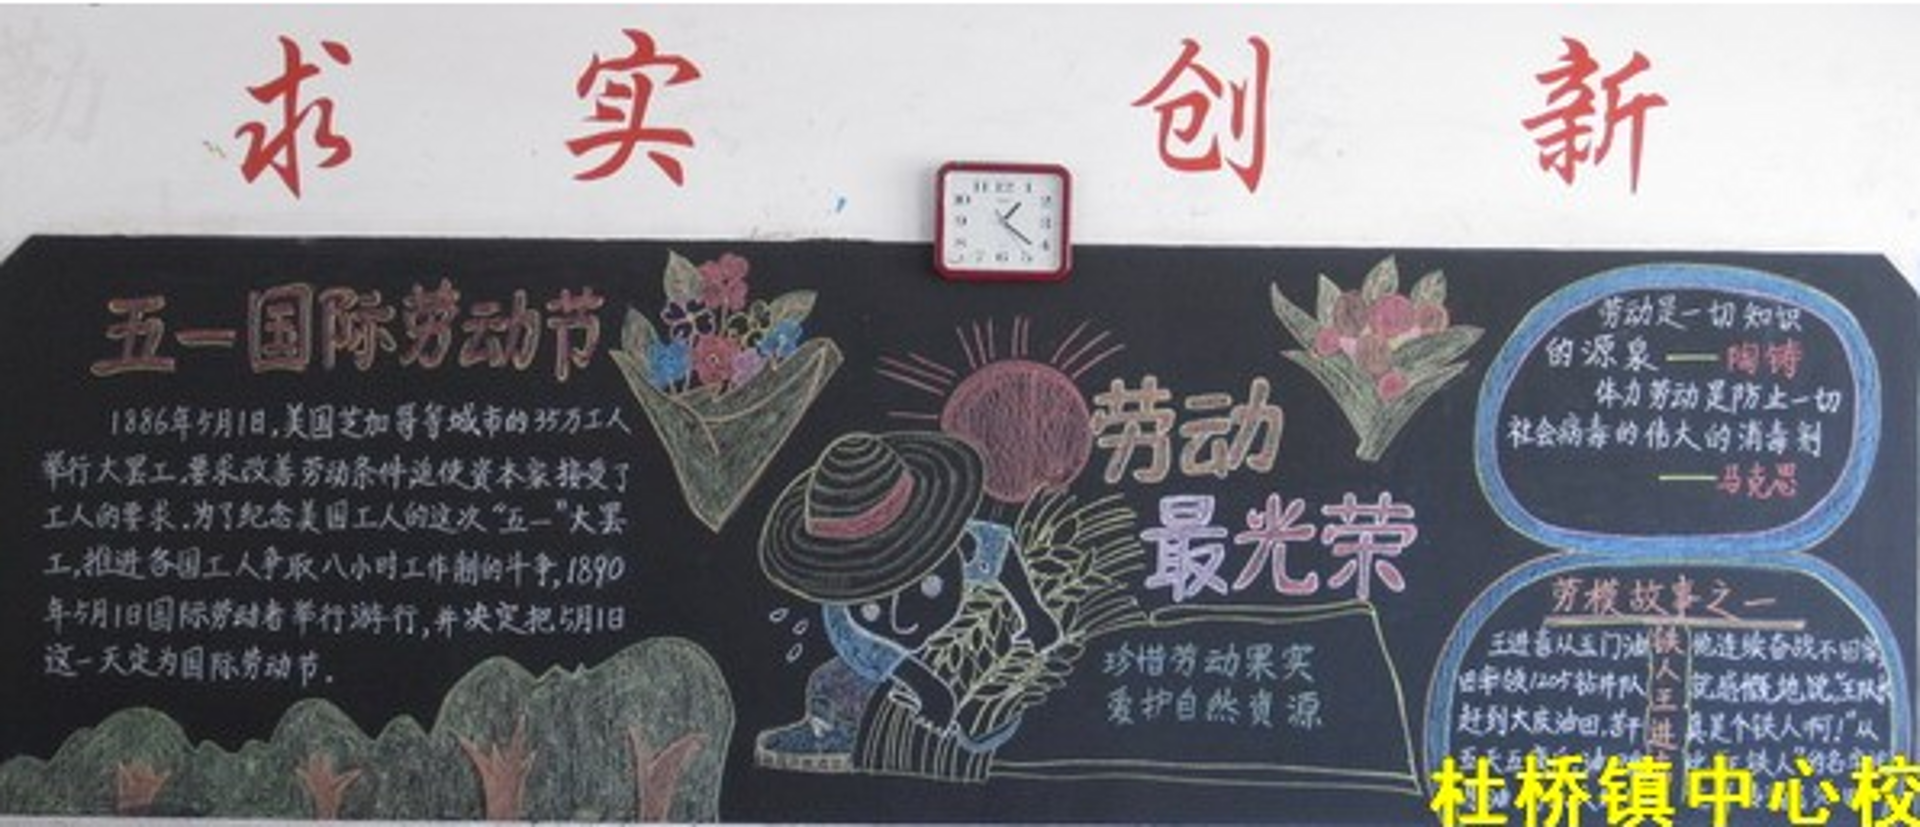 求 实 创 新
11 12 1
10 2
9 3
8 4
7 6 5
五一国际劳动节
1886年5月1日,美国芝加哥等城市的35万工人
举行大罢工.要求改善劳动条件迫使资本家接受了
工人的要求.为了纪念美国工人的这次“五一”大罢
工,推进各国工人争取八小时工作制的斗争,1890
年5月1日国际劳动者举行游行,并决定把5月1日
这一天定为国际劳动节.
劳动
最光荣
珍惜劳动果实
爱护自然资源
劳动是一切知识
的源泉——陶铸
体力劳动是防止一切
社会病毒的伟大的消毒剂
——马克思
劳模故事之一
铁人王进
王进喜从玉门油
田率领1205钻井队
赶到大庆油田.苦干
他连续奋战不回家
就感慨地说“王队
真是个铁人啊!”从
铁人”的名字
杜桥镇中心校